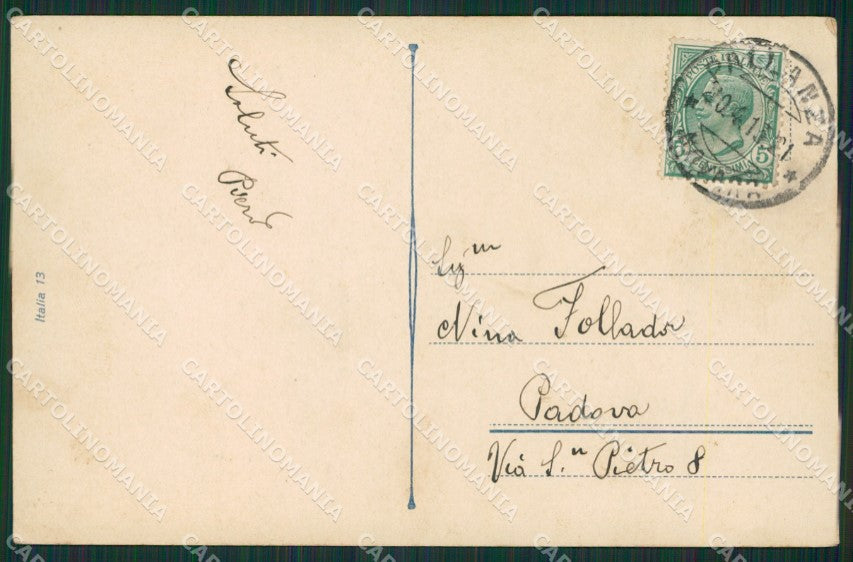 Saluti
Piero
Italia 13
POSTE ITALIANE
5
PALLANZA
Sig.na
Nina Follador
Padova
Via S.n Pietro 8
CARTOLINOMANIA